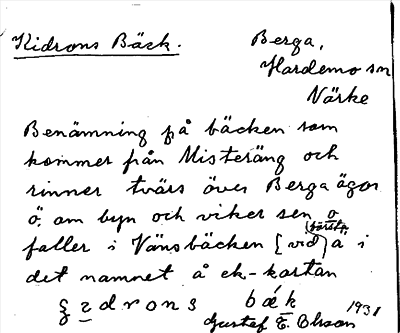 Kidrons Bäck.
Berga,
Hardemo sn
Närke
Benämning på bäcken som
kommer från Misteräng och
rinner tvärs över Berga ägor
ö. om byn och viker sen o.
faller i Vänsbäcken [vid] a i
det namnet å ek-kartan
drons bäk
1931
Gustef E. Olsson